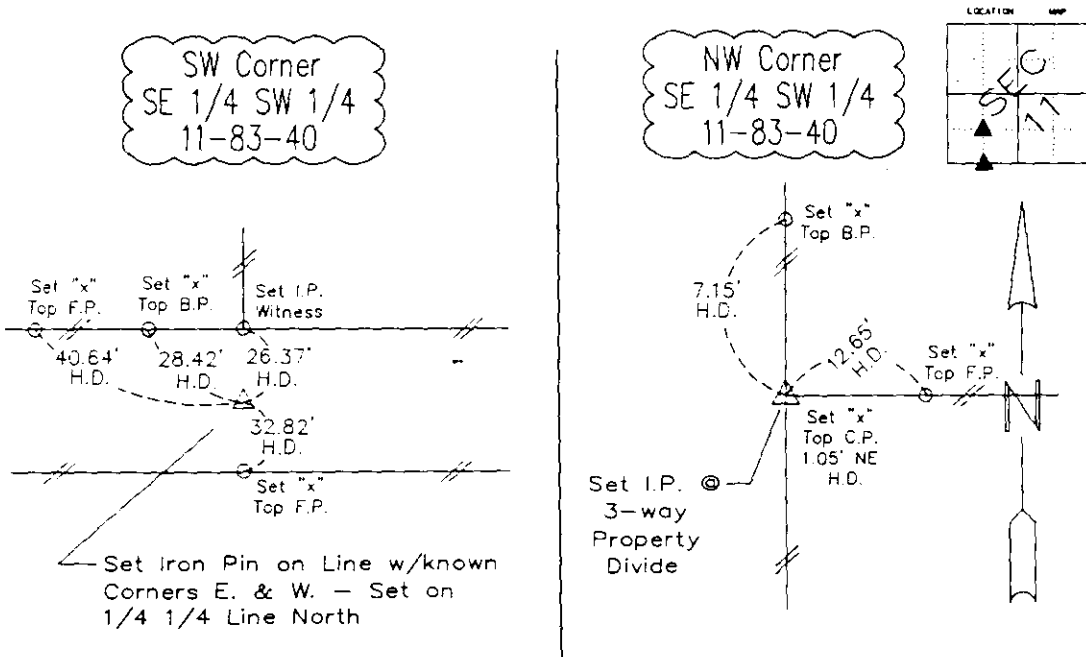 SW Corner
SE 1/4 SW 1/4
11-83-40
Set "x"
Top F.P.
Set "x"
Top B.P.
Set I.P.
Witness
40.64'
H.D.
28.42'
H.D.
26.37'
H.D.
32.82'
H.D.
Set "x"
Top F.P.
Set Iron Pin on Line w/known
Corners E. & W. – Set on
1/4 1/4 Line North
NW Corner
SE 1/4 SW 1/4
11-83-40
Set "x"
Top B.P.
7.15'
H.D.
12.65'
H.D.
Set "x"
Top F.P.
Set "x"
Top C.P.
1.05' NE
H.D.
Set I.P. @
3-way
Property
Divide
LOCATION MAP
SEC
11
N